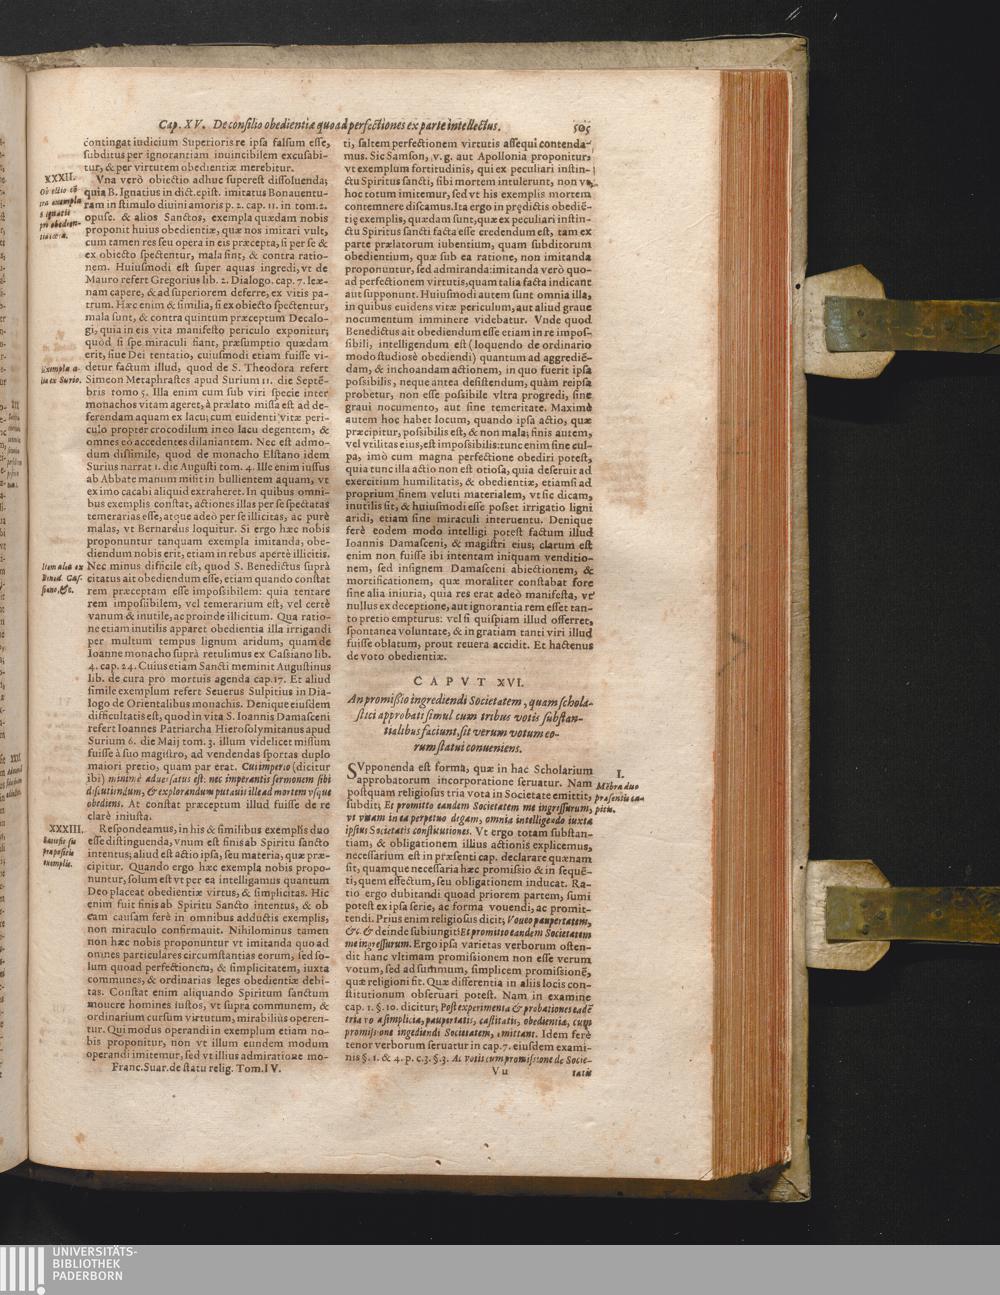 Cap. XV. De consilio obedientiæ quoad perfectiones ex parte intellectus. 505
contingat iudicium Superioris re ipsa falsum esse,
subditus per ignorantiam inuincibilem excusabi-
tur, & per virtutem obedientiæ merebitur.
XXXII.
Vna verò obiectio adhuc superest dissoluenda;
quia B. Ignatius in dict. epist. imitatus Bonauentu-
ram in stimulo diuini amoris p. 2. cap. 11. in tom. 2.
opusc. & alios Sanctos, exempla quædam nobis
proponit huius obedientiæ, quæ nos imitari vult,
cum tamen res seu opera in eis præcepta, si per se &
ex obiecto spectentur, mala sint, & contra ratio-
nem. Huiusmodi est super aquas ingredi, vt de
Mauro refert Gregorius lib. 2. Dialogo. cap. 7. leæ-
nam capere, & ad superiorem deferre, ex vitis pa-
trum. Hæc enim & similia, si ex obiecto spectentur,
mala sunt, & contra quintum præceptum Decalo-
gi, quia in eis vita manifesto periculo exponitur;
quòd si spe miraculi fiant, præsumptio quædam
erit, siue Dei tentatio, cuiusmodi etiam fuisse vi-
Exempla a-
lia ex Surio.
detur factum illud, quod de S. Theodora refert
Simeon Metaphrastes apud Surium 11. die Septē-
bris tomo 5. Illa enim cum sub viri specie inter
monachos vitam ageret, à prælato missa est ad de-
ferendam aquam ex lacu; cum euidenti vitæ peri-
culo propter crocodilum in eo lacu degentem, &
omnes eò accedentes dilaniantem. Nec est admo-
dum dissimile, quod de monacho Elstano idem
Surius narrat 1. die Augusti tom. 4. Ille enim iussus
ab Abbate manum misit in bullientem aquam, vt
ex imo cacabi aliquid extraheret. In quibus omni-
bus exemplis constat, actiones illas per se spectatas
temerarias esse, atque adeò per se illicitas, ac purè
malas, vt Bernardus loquitur. Si ergo hæc nobis
proponuntur tanquam exempla imitanda, obe-
diendum nobis erit, etiam in rebus apertè illicitis.
Item alia ex
Bened. Cas-
siano, &c.
Nec minus difficile est, quod S. Benedictus suprà
citatus ait obediendum esse, etiam quando constat
rem præceptam esse impossibilem: quia tentare
rem impossibilem, vel temerarium est, vel certè
vanum & inutile, ac proinde illicitum. Qua ratio-
ne etiam inutilis apparet obedientia illa irrigandi
per multum tempus lignum aridum, quam de
Ioanne monacho suprà retulimus ex Cassiano lib.
4. cap. 24. Cuius etiam Sancti meminit Augustinus
lib. de cura pro mortuis agenda cap. 17. Et aliud
simile exemplum refert Seuerus Sulpitius in Dia-
logo de Orientalibus monachis. Denique eiusdem
difficultatis est, quod in vita S. Ioannis Damasceni
refert Ioannes Patriarcha Hierosolymitanus apud
Surium 6. die Maij tom. 3. illum videlicet missum
fuisse à suo magistro, ad vendendas sportas duplo
maiori pretio, quam par erat. Cui imperio (dicitur
ibi) minimè aduersatus est: nec imperantis sermonem sibi
discutiendum, & explorandum putauit ille ad mortem vsque
obediens. At constat præceptum illud fuisse de re
clarè iniusta.
XXXIII.
Respondeamus, in his & similibus exemplis duo
esse distinguenda, vnum est finis ab Spiritu sancto
intentus; aliud est actio ipsa, seu materia, quæ præ-
cipitur. Quando ergo hæc exempla nobis propo-
nuntur, solum est vt per ea intelligamus quantum
Deo placeat obedientiæ virtus, & simplicitas. Hic
enim fuit finis ab Spiritu Sancto intentus, & ob
eam causam ferè in omnibus adductis exemplis,
non miraculo confirmauit. Nihilominus tamen
non hæc nobis proponuntur vt imitanda quo ad
omnes particulares circumstantias eorum, sed so-
lum quoad perfectionem, & simplicitatem, iuxta
communes, & ordinarias leges obedientiæ debi-
tas. Constat enim aliquando Spiritum sanctum
mouere homines iustos, vt supra communem, &
ordinarium cursum virtutum, mirabilius operen-
tur. Qui modus operandi in exemplum etiam no-
bis proponitur, non vt illum eundem modum
operandi imitemur, sed vt illius admiratione mo-
Franc. Suar. de statu relig. Tom. IV.
ti, saltem perfectionem virtutis assequi contenda-
mus. Sic Samson, v. g. aut Apollonia proponitur,
vt exemplum fortitudinis, qui ex peculiari instin-
ctu Spiritus sancti, sibi mortem intulerunt, non vt
hoc totum imitemur, sed vt his exemplis mortem
contemnere discamus. Ita ergo in prędictis obediē-
tię exemplis, quædam sunt, quæ ex peculiari instin-
ctu Spiritus sancti facta esse credendum est, tam ex
parte prælatorum iubentium, quam subditorum
obedientium, quæ sub ea ratione, non imitanda
proponuntur, sed admiranda: imitanda verò quo-
ad perfectionem virtutis, quam talia facta indicant
aut supponunt. Huiusmodi autem sunt omnia illa,
in quibus euidens vitæ periculum, aut aliud graue
nocumentum imminere videbatur. Vnde quod
Benedictus ait obediendum esse etiam in re impos-
sibili, intelligendum est (loquendo de ordinario
modo studiosè obediendi) quantum ad aggrediē-
dam, & inchoandam actionem, in quo fuerit ipsa
possibilis, neque antea desistendum, quàm reipsa
probetur, non esse possibile vltra progredi, sine
graui nocumento, aut sine temeritate. Maximè
autem hoc habet locum, quando ipsa actio, quæ
præcipitur, possibilis est, & non mala; finis autem,
vel vtilitas eius, est impossibilis: tunc enim sine cul-
pa, imò cum magna perfectione obediri potest,
quia tunc illa actio non est otiosa, quia deseruit ad
exercitium humilitatis, & obedientiæ, etiamsi ad
proprium finem veluti materialem, vt sic dicam,
inutilis sit, & huiusmodi esse posset irrigatio ligni
aridi, etiam sine miraculi interuentu. Denique
ferè eodem modo intelligi potest factum illud
Ioannis Damasceni, & magistri eius; clarum est
enim non fuisse ibi intentam iniquam venditio-
nem, sed insignem Damasceni abiectionem, &
mortificationem, quæ moraliter constabat fore
sine alia iniuria, quia res erat adeò manifesta, vt
nullus ex deceptione, aut ignorantia rem esset tan-
to pretio empturus: vel si quispiam illud offerret,
spontanea voluntate, & in gratiam tanti viri illud
fuisse oblatum, prout reuera accidit. Et hactenus
de voto obedientiæ.
CAPVT XVI.
An promissio ingrediendi Societatem, quam schola-
stici approbati simul cum tribus votis substan-
tialibus faciunt, sit verum votum eo-
rum statui conueniens.
I.
Mēbra duo
præsentis ca-
pitis.
SVpponenda est forma, quæ in hac Scholarium
approbatorum incorporatione seruatur. Nam
postquam religiosus tria vota in Societate emittit,
subdit; Et promitto eandem Societatem me ingressurum,
vt vitam in ea perpetuo degam, omnia intelligendo iuxta
ipsius Societatis constitutiones. Vt ergo totam substan-
tiam, & obligationem illius actionis explicemus,
necessarium est in præsenti cap. declarare quænam
sit, quamque necessaria hæc promissio & in sequē-
ti, quem effectum, seu obligationem inducat. Ra-
tio ergo dubitandi quoad priorem partem, sumi
potest ex ipsa serie, ac forma vouendi, ac promit-
tendi. Prius enim religiosus dicit; Voueo paupertatem,
&c. & deinde subiungit: Et promitto eandem Societatem
me ingressurum. Ergo ipsa varietas verborum osten-
dit hanc vltimam promissionem non esse verum
votum, sed ad summum, simplicem promissionē,
quæ religioni fit. Quæ differentia in aliis locis con-
stitutionum obseruari potest. Nam in examine
cap. 1. §. 10. dicitur; Post experimenta & probationes eadē
tria vota simplicia, paupertatis, castitatis, obedientiæ, cum
promissione ingediendi Societatem, emittant. Idem ferè
tenor verborum seruatur in cap. 7. eiusdem exami-
nis §. 1. & 4. p. c. 3. §. 3. Ac votis cum promissione de Socie-
Vu tatis
UNIVERSITÄTS-
BIBLIOTHEK
PADERBORN